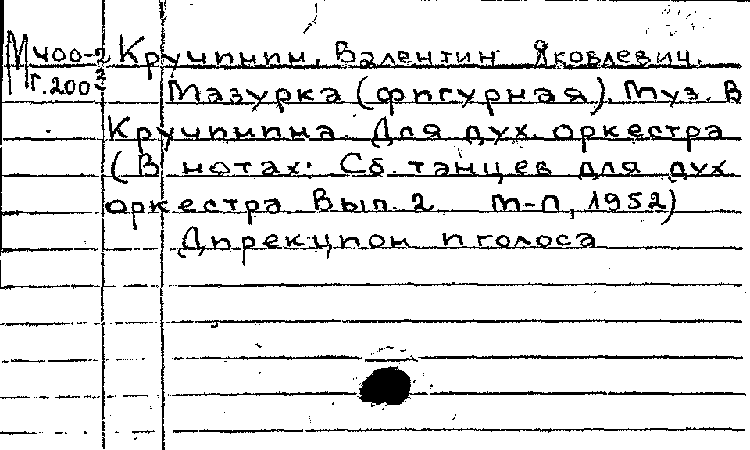 М 400-2 Кручинин, Валентин Яковлевич.
г.200-2 Мазурка (фигурная). Муз. В
Кручинина. Для дух. оркестра
(В нотах: Сб. танцев для дух.
оркестра Вып. 2 М-Л, 1952)
Дирекцион и голоса